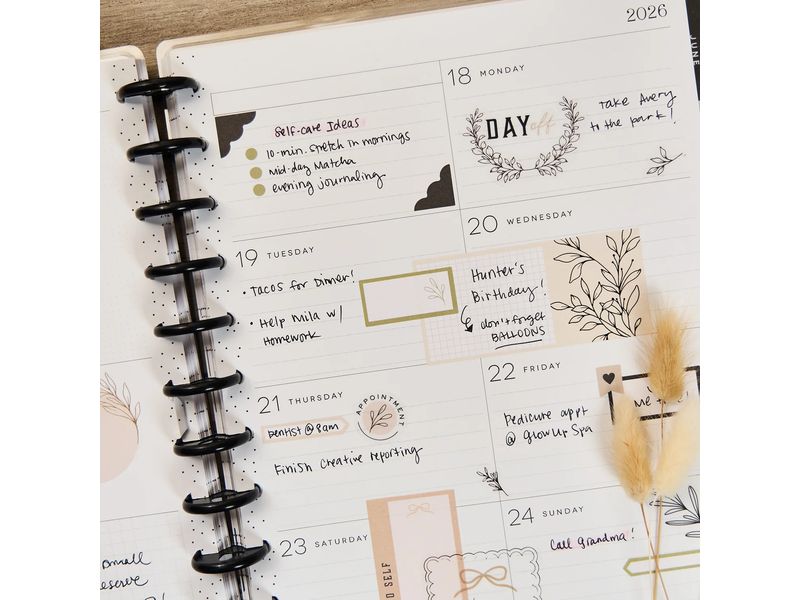 2026
JUNE
Self-care Ideas
10-min. stretch in mornings
Mid-day Matcha
evening journaling
18 MONDAY
DAY off
Take Avery
to the park!
19 TUESDAY
• Tacos for Dinner!
• Help Mila w/
Homework
20 WEDNESDAY
Hunter's
Birthday!
don't forget
BALLOONS
21 THURSDAY
Dentist @ 8am
APPOINTMENT
Finish Creative reporting
22 FRIDAY
Pedicure appt
@ Glow Up Spa
me
23 SATURDAY
SELF
24 SUNDAY
Call grandma!
small